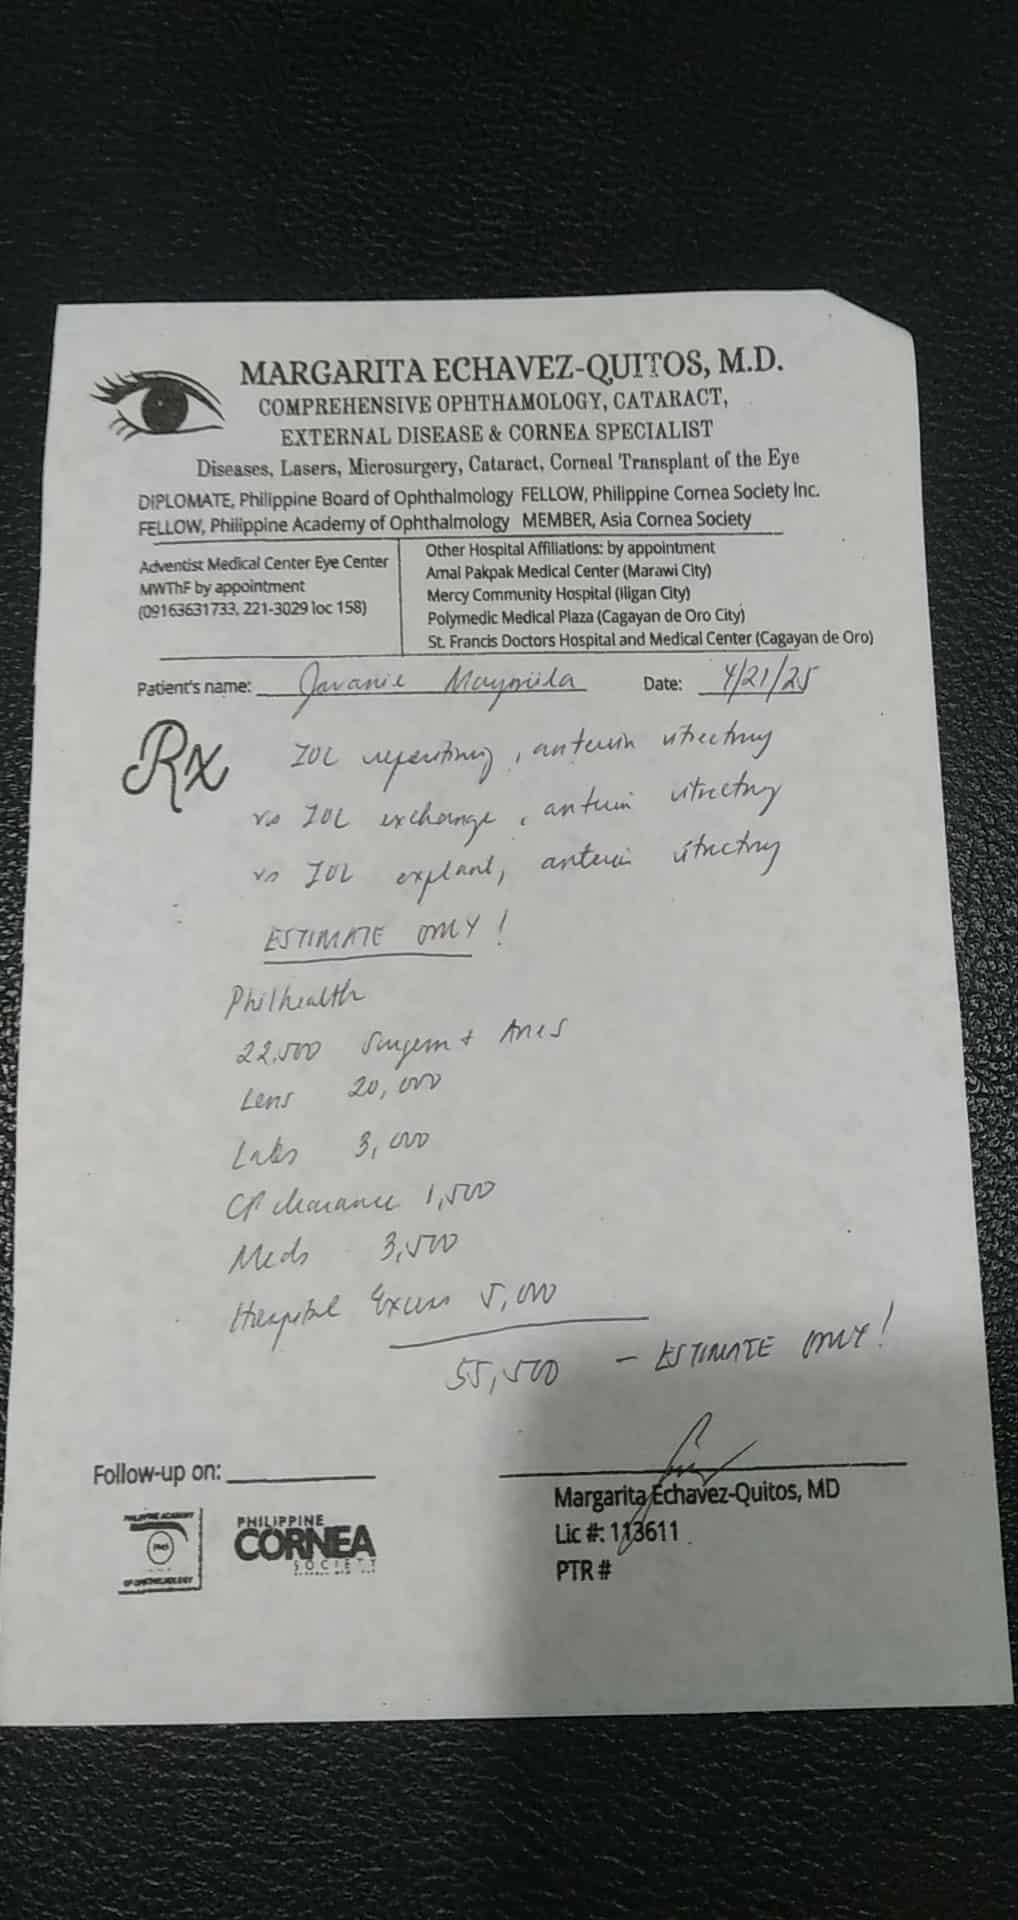 MARGARITA ECHAVEZ-QUITOS, M.D.
COMPREHENSIVE OPHTHAMOLOGY, CATARACT,
EXTERNAL DISEASE & CORNEA SPECIALIST
Diseases, Lasers, Microsurgery, Cataract, Corneal Transplant of the Eye
DIPLOMATE, Philippine Board of Ophthalmology FELLOW, Philippine Cornea Society Inc.
FELLOW, Philippine Academy of Ophthalmology MEMBER, Asia Cornea Society
Adventist Medical Center Eye Center
MWThF by appointment
(09163631733, 221-3029 loc 158)
Other Hospital Affiliations: by appointment
Amai Pakpak Medical Center (Marawi City)
Mercy Community Hospital (Iligan City)
Polymedic Medical Plaza (Cagayan de Oro City)
St. Francis Doctors Hospital and Medical Center (Cagayan de Oro)
Patient's name: Date: 4/21/25
Rx IOL , anterior vitrectomy
vs IOL exchange, anterior vitrectomy
vs IOL explant, anterior vitrectomy
ESTIMATE ONLY!
Philhealth
22,500 Surgeon + Anes
Lens 20,000
Labs 3,000
CP clearance 1,500
Meds 3,500
Hospital Excess 5,000
55,500 - ESTIMATE ONLY!
Follow-up on:
Margarita Echavez-Quitos, MD
Lic #: 113611
PTR #
PHILIPPINE ACADEMY
OF OPHTHALMOLOGY
PHILIPPINE
CORNEA
SOCIETY